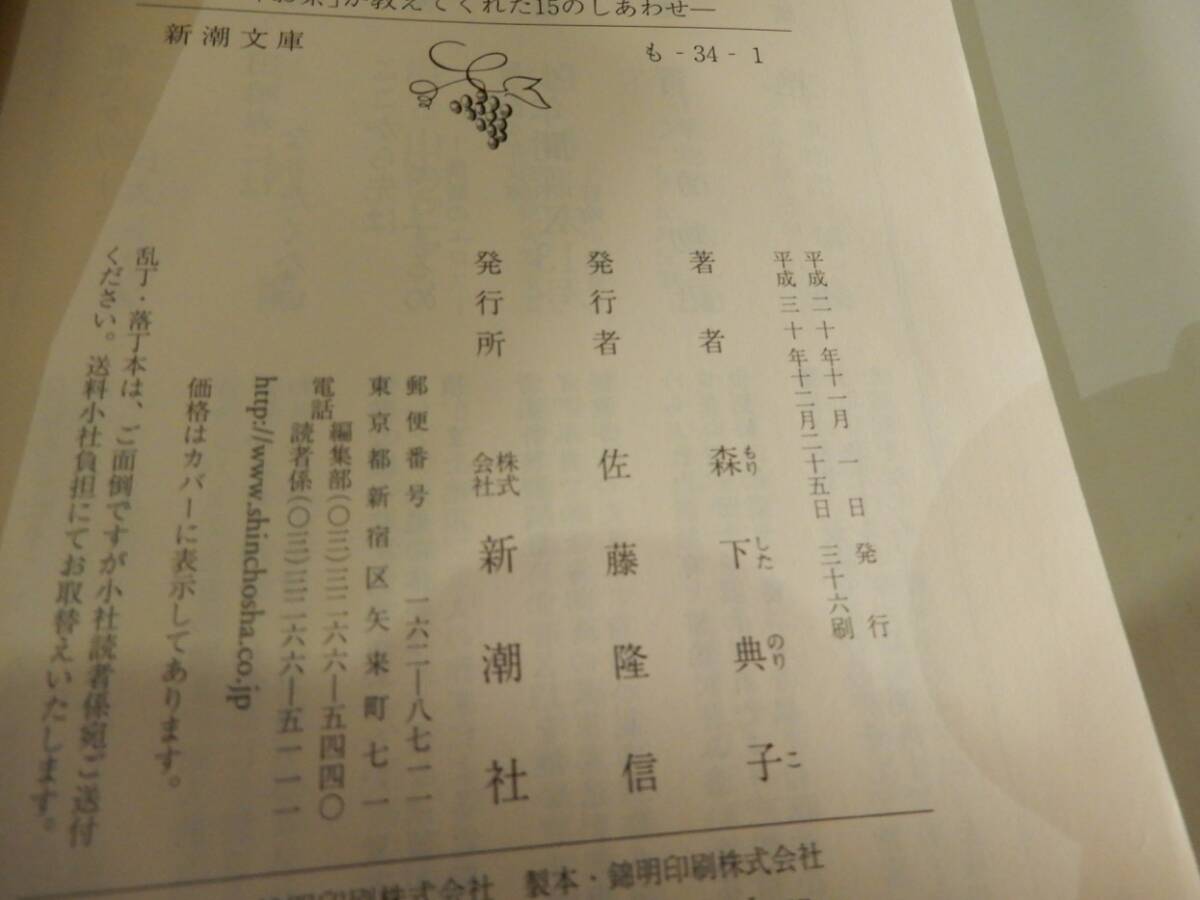 「お茶」が教えてくれた15のしあわせ―
新潮文庫
も - 34 - 1
平成二十年十一月一日発行
平成三十年十二月二十五日三十六刷
著者 森下典子
もりしたのりこ
発行者 佐藤隆信
発行所 株式会社 新潮社
郵便番号 一六二―八七一一
東京都新宿区矢来町七一
電話 編集部(〇三)三二六六―五四四〇
読者係(〇三)三二六六―五一一一
http://www.shinchosha.co.jp
価格はカバーに表示してあります。
乱丁・落丁本は、ご面倒ですが小社読者係宛ご送付
ください。送料小社負担にてお取替えいたします。
錦明印刷株式会社 製本・錦明印刷株式会社